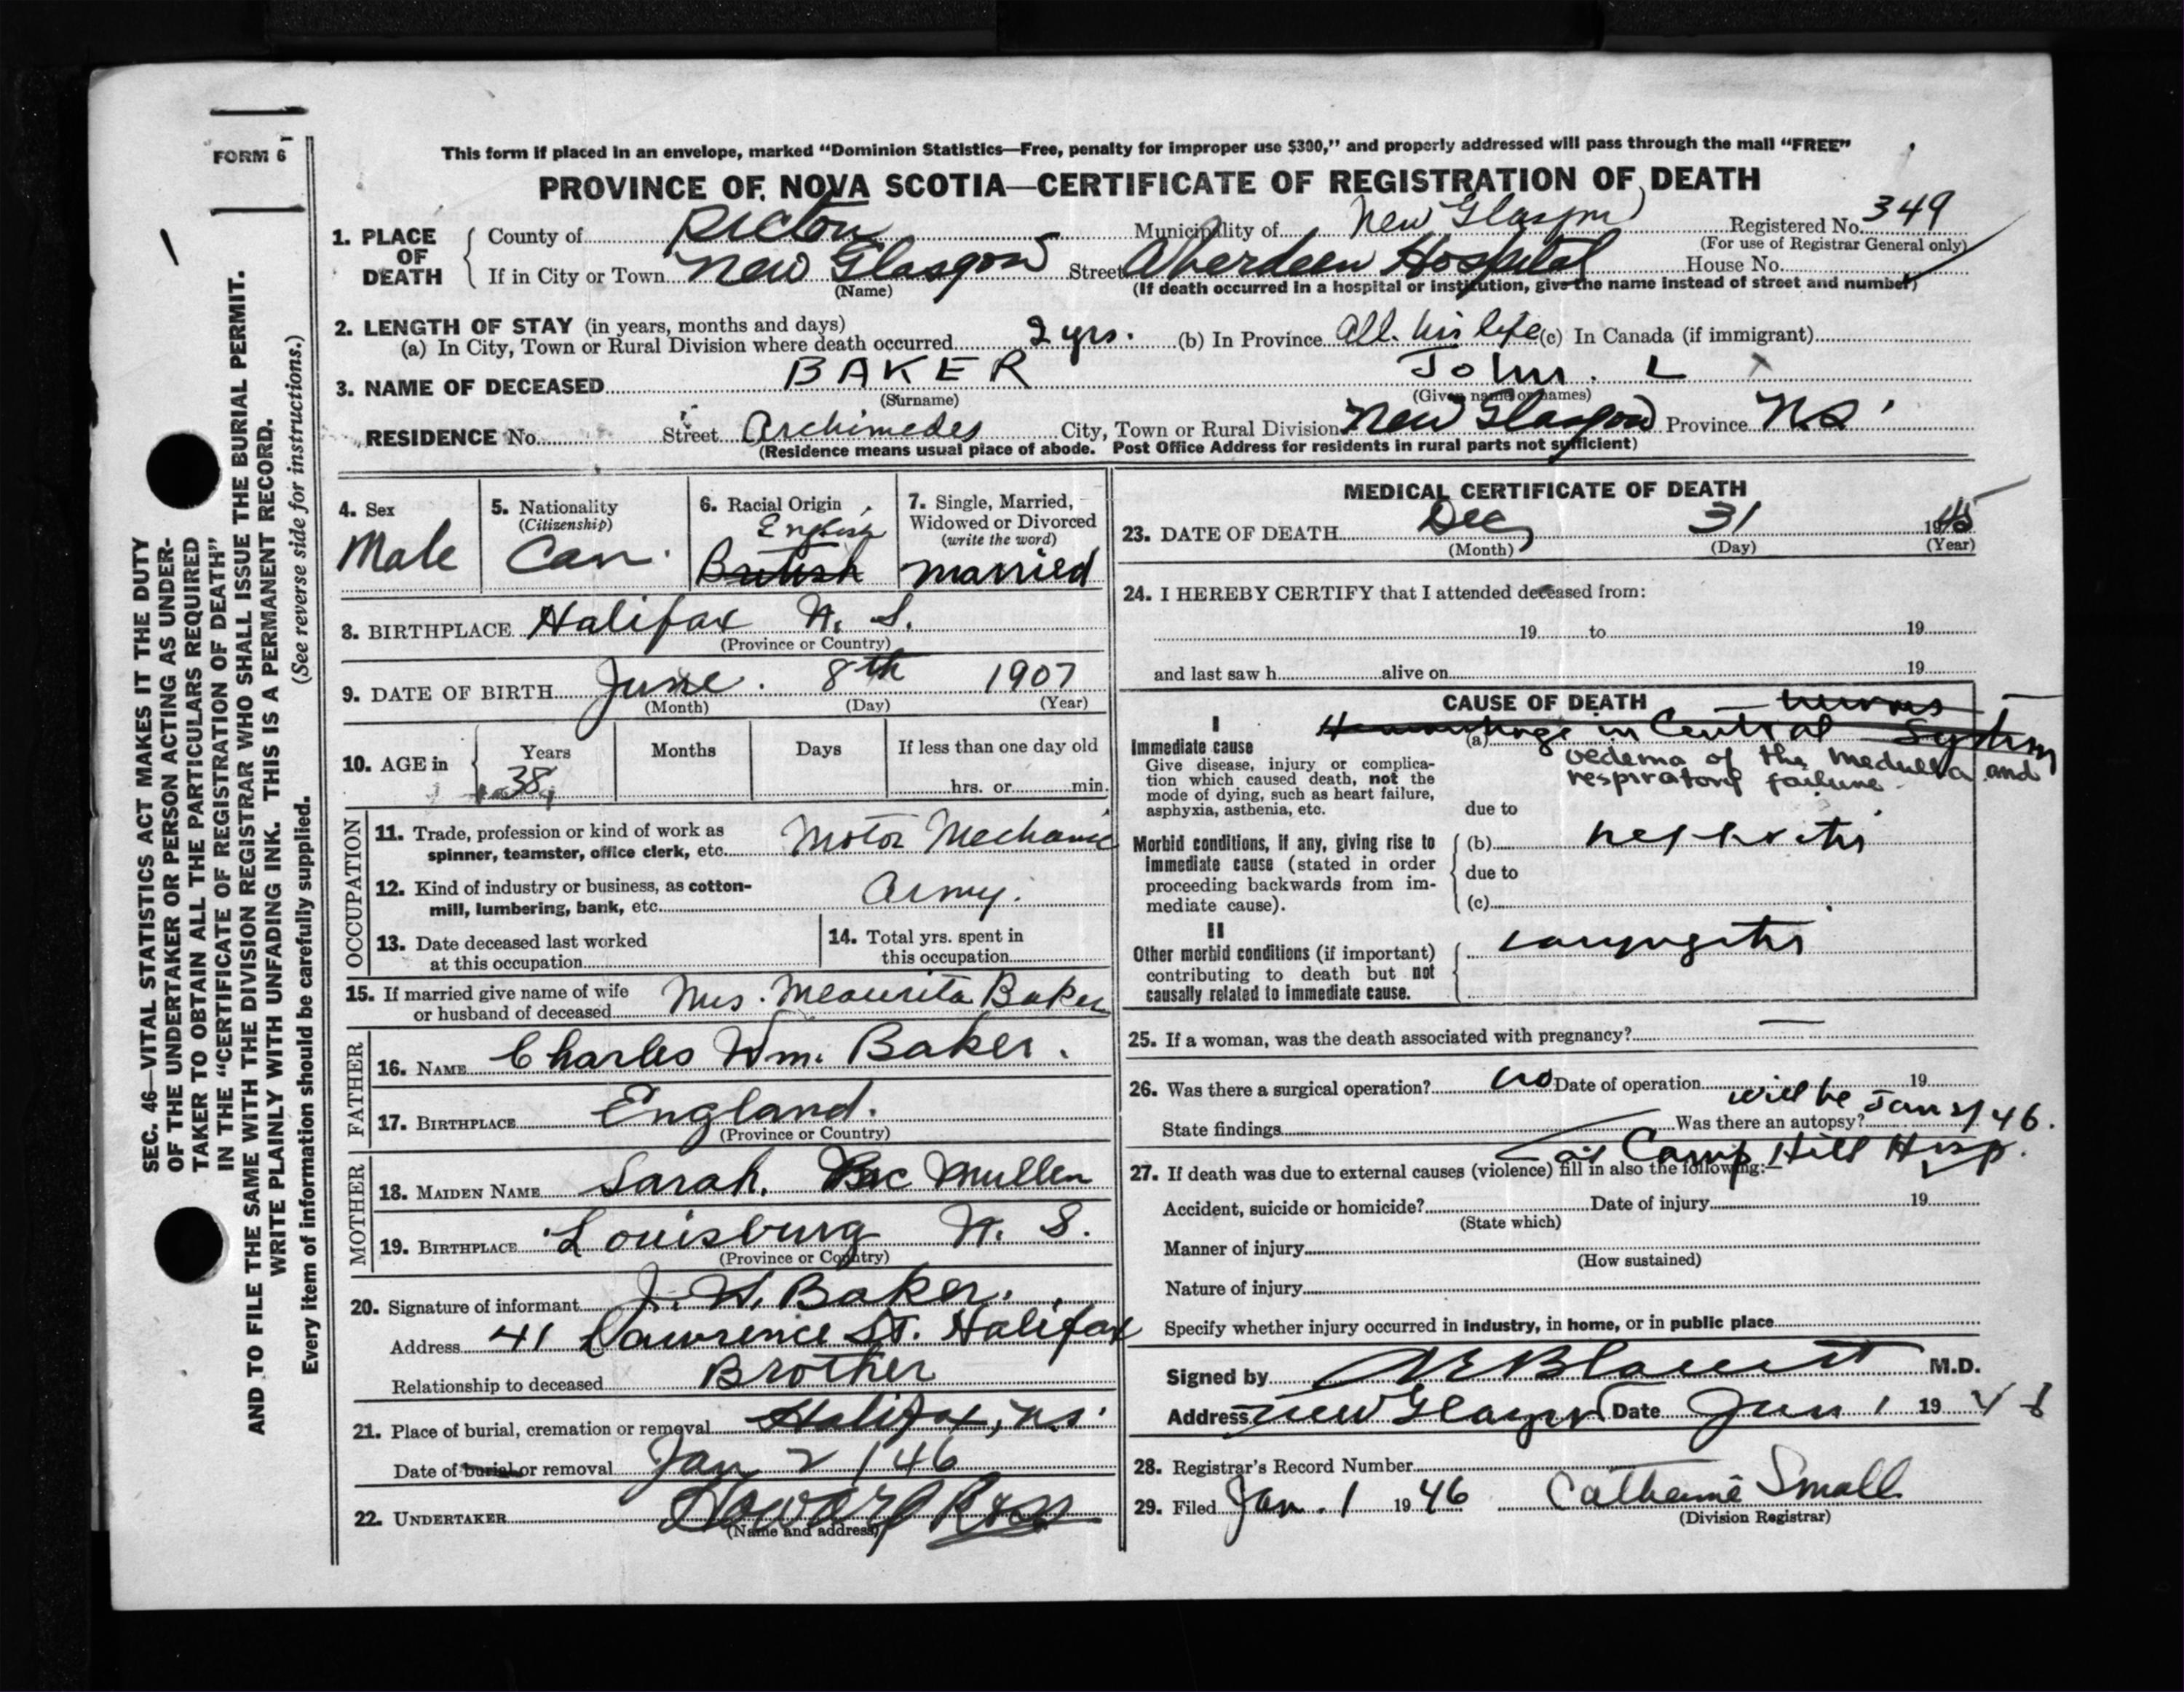 FORM 6
This form if placed in an envelope, marked "Dominion Statistics—Free, penalty for improper use $300," and properly addressed will pass through the mail "FREE"
PROVINCE OF NOVA SCOTIA—CERTIFICATE OF REGISTRATION OF DEATH
1. PLACE OF DEATH
County of Pictou Municipality of New Glasgow Registered No. 349
(For use of Registrar General only)
If in City or Town New Glasgow Street Aberdeen Hospital House No.
(Name) (If death occurred in a hospital or institution, give the name instead of street and number)
2. LENGTH OF STAY (in years, months and days)
(a) In City, Town or Rural Division where death occurred 2 yrs. (b) In Province All his life (c) In Canada (if immigrant)
3. NAME OF DECEASED BAKER John. L
(Surname) (Given name or names)
RESIDENCE No. Street Archimedes City, Town or Rural Division New Glasgow Province N.S.
(Residence means usual place of abode. Post Office Address for residents in rural parts not sufficient)
4. Sex
Male
5. Nationality
(Citizenship)
Can.
6. Racial Origin
English
British
7. Single, Married,
Widowed or Divorced
(write the word)
married
8. BIRTHPLACE Halifax N. S.
(Province or Country)
9. DATE OF BIRTH June. 8th 1907
(Month) (Day) (Year)
10. AGE in Years Months Days If less than one day old
38 hrs. or min.
OCCUPATION
11. Trade, profession or kind of work as
spinner, teamster, office clerk, etc. Motor Mechanic
12. Kind of industry or business, as cotton-
mill, lumbering, bank, etc. Army.
13. Date deceased last worked
at this occupation
14. Total yrs. spent in
this occupation
15. If married give name of wife
or husband of deceased Mrs. Baker
FATHER
16. NAME Charles Wm. Baker.
17. BIRTHPLACE England.
(Province or Country)
MOTHER
18. MAIDEN NAME Sarah. Mullen
19. BIRTHPLACE Louisburg N. S.
(Province or Country)
20. Signature of informant Baker.
Address 41 Lawrence St. Halifax
Relationship to deceased Brother
21. Place of burial, cremation or removal Halifax, N.S.
Date of burial or removal Jan 2 / 46
22. UNDERTAKER Howard Ross
(Name and address)
MEDICAL CERTIFICATE OF DEATH
23. DATE OF DEATH Dec 31 1945
(Month) (Day) (Year)
24. I HEREBY CERTIFY that I attended deceased from:
19 to 19
and last saw h alive on 19
CAUSE OF DEATH
I
Immediate cause
Give disease, injury or complica-
tion which caused death, not the
mode of dying, such as heart failure,
asphyxia, asthenia, etc.
(a) Hemorrhage in Central nervous System
oedema of the medulla and
respiratory failure
due to
Morbid conditions, if any, giving rise to
immediate cause (stated in order
proceeding backwards from im-
mediate cause).
(b) nephritis
due to
(c)
II
Other morbid conditions (if important)
contributing to death but not
causally related to immediate cause.
Laryngitis
25. If a woman, was the death associated with pregnancy? —
26. Was there a surgical operation? no Date of operation 19
State findings Was there an autopsy? will be Jan 2/46.
at Camp Hill Hosp.
27. If death was due to external causes (violence) fill in also the following:—
Accident, suicide or homicide? Date of injury 19
(State which)
Manner of injury
(How sustained)
Nature of injury
Specify whether injury occurred in industry, in home, or in public place
Signed by M.D.
Address New Glasgow Date Jan 1 1946
28. Registrar's Record Number
29. Filed Jan. 1 1946 Catherine Small
(Division Registrar)
SEC. 46—VITAL STATISTICS ACT MAKES IT THE DUTY
OF THE UNDERTAKER OR PERSON ACTING AS UNDER-
TAKER TO OBTAIN ALL THE PARTICULARS REQUIRED
IN THE "CERTIFICATE OF REGISTRATION OF DEATH"
AND TO FILE THE SAME WITH THE DIVISION REGISTRAR WHO SHALL ISSUE THE BURIAL PERMIT.
WRITE PLAINLY WITH UNFADING INK. THIS IS A PERMANENT RECORD.
Every item of information should be carefully supplied. (See reverse side for instructions.)